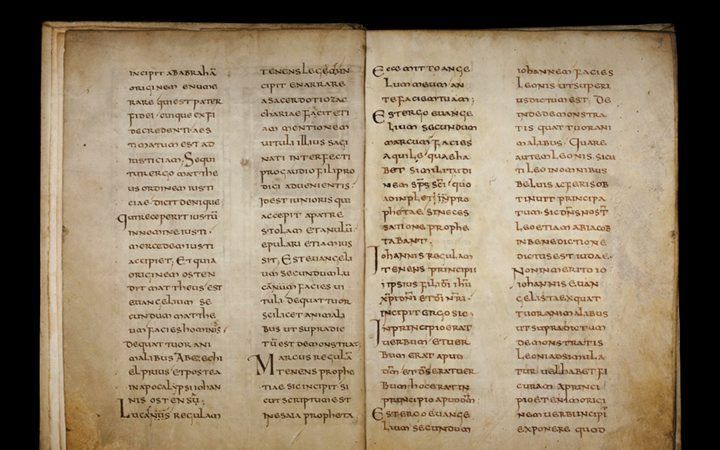 INCIPIT AB ABRAHĀ
ORIGINEM ENUME
RARE QUI EST PATER
FIDEI CUIQUE EX FI
DE CREDENTI AES
TIMATUM EST AD
IUSTICIAM; SEQUI
TUR ERGO MATTHE
US ORDINEM IUSTI
CIAE DICIT DENIQUE;
QUI RECEPERIT IUSTŪ
IN NOMINE IUSTI
MERCEDEM IUSTI
ACCIPIET; ET QUIA
ORIGINEM OSTEN
DIT MATTHEUS EST
EUANGELIUM SE
CUNDUM MATTHE
UM FACIES HOMINIS
DE QUATTUOR ANI
MALIBUS AB EZECHI
EL PRIUS ET POSTEA
IN APOCALYPSI IOHAN
NIS OSTENSŪ;
LUCANUS REGULAM
TENENS LEGEM IN
CIPIT ENARRARE
A SACERDOTIO ZAC
CHARIAE FACIT ETI
AM MENTIONEM
UITULI ILLIUS SAGI
NATI INTERFECTI
PRO GAUDIO FILI PRO
DIGI ADUENIENTIS;
ID EST IUNIORIS QUI
ACCEPIT A PATRE
STOLAM ET ANULŪ
EPULARI ETIAM IUS
SIT; EST EUANGELI
UM SECUNDUM LU
CANUM FACIES UI
TULI DE QUATTUOR
SCILICET ANIMALI
BUS UT SUPRA DIC
TŪ EST DEMONSTRAT;
MARCUS REGULĀ
TENENS PROPHE
TIAE SIC INCIPIT SI
CUT SCRIPTUM EST
IN ESAIA PROPHETA
ECCE MITTO ANGE
LUM MEUM AN
TE FACIEM TUAM;
EST ERGO EUANGE
LIUM SECUNDUM
MARCUM FACIES
AQUILE QUAE HA
BET SIMILITUDI
NEM SP̄S SC̄I QUO
ADINPLETI IN PRO
PHETAE SINE CES
SATIONE PROPHE
TABANT;
IOHANNIS REGULAM
TENENS PRINCIPII
IPSIUS FILI DĪ IHŪ
XP̄I DNĪ ET DĪ NR̄I
INCIPIT ERGO SIC
IN PRINCIPIO ERAT
UERBUM ET UER
BUM ERAT APUD
DM̄ ET DS̄ ERAT UER
BUM HOC ERAT IN
PRINCIPIO APUD DM̄
EST ERGO EUANGE
LIUM SECUNDUM
IOHANNEM FACIES
LEONIS UT SUPERI
US DICTUM EST DE
INDE DEMONSTRA
TIS QUATTUOR ANI
MALIBUS QUARE
AUTEM LEONIS SICU
TI LEO IN OMNIBUS
BELUIS AC FERIS OB
TINUIT PRINCIPA
TUM SIC DN̄S NOST̄
LEO ETIAM AB IACOB
IN BENEDICTIONE
DICTUS EST IUDAE
NON INMERITO IO
IOHANNIS EUAN
GELISTA EX QUAT
TUOR ANIMALIBUS
UT SUPRA DICTUM
DEMONSTRATIS
LEONI ADSIMILA
TUR UEL HABET FI
GURAM A PRINCI
PIO ETENIM ORIGI
NEM UERBI INCIPĪ
EXPONERE QUOD